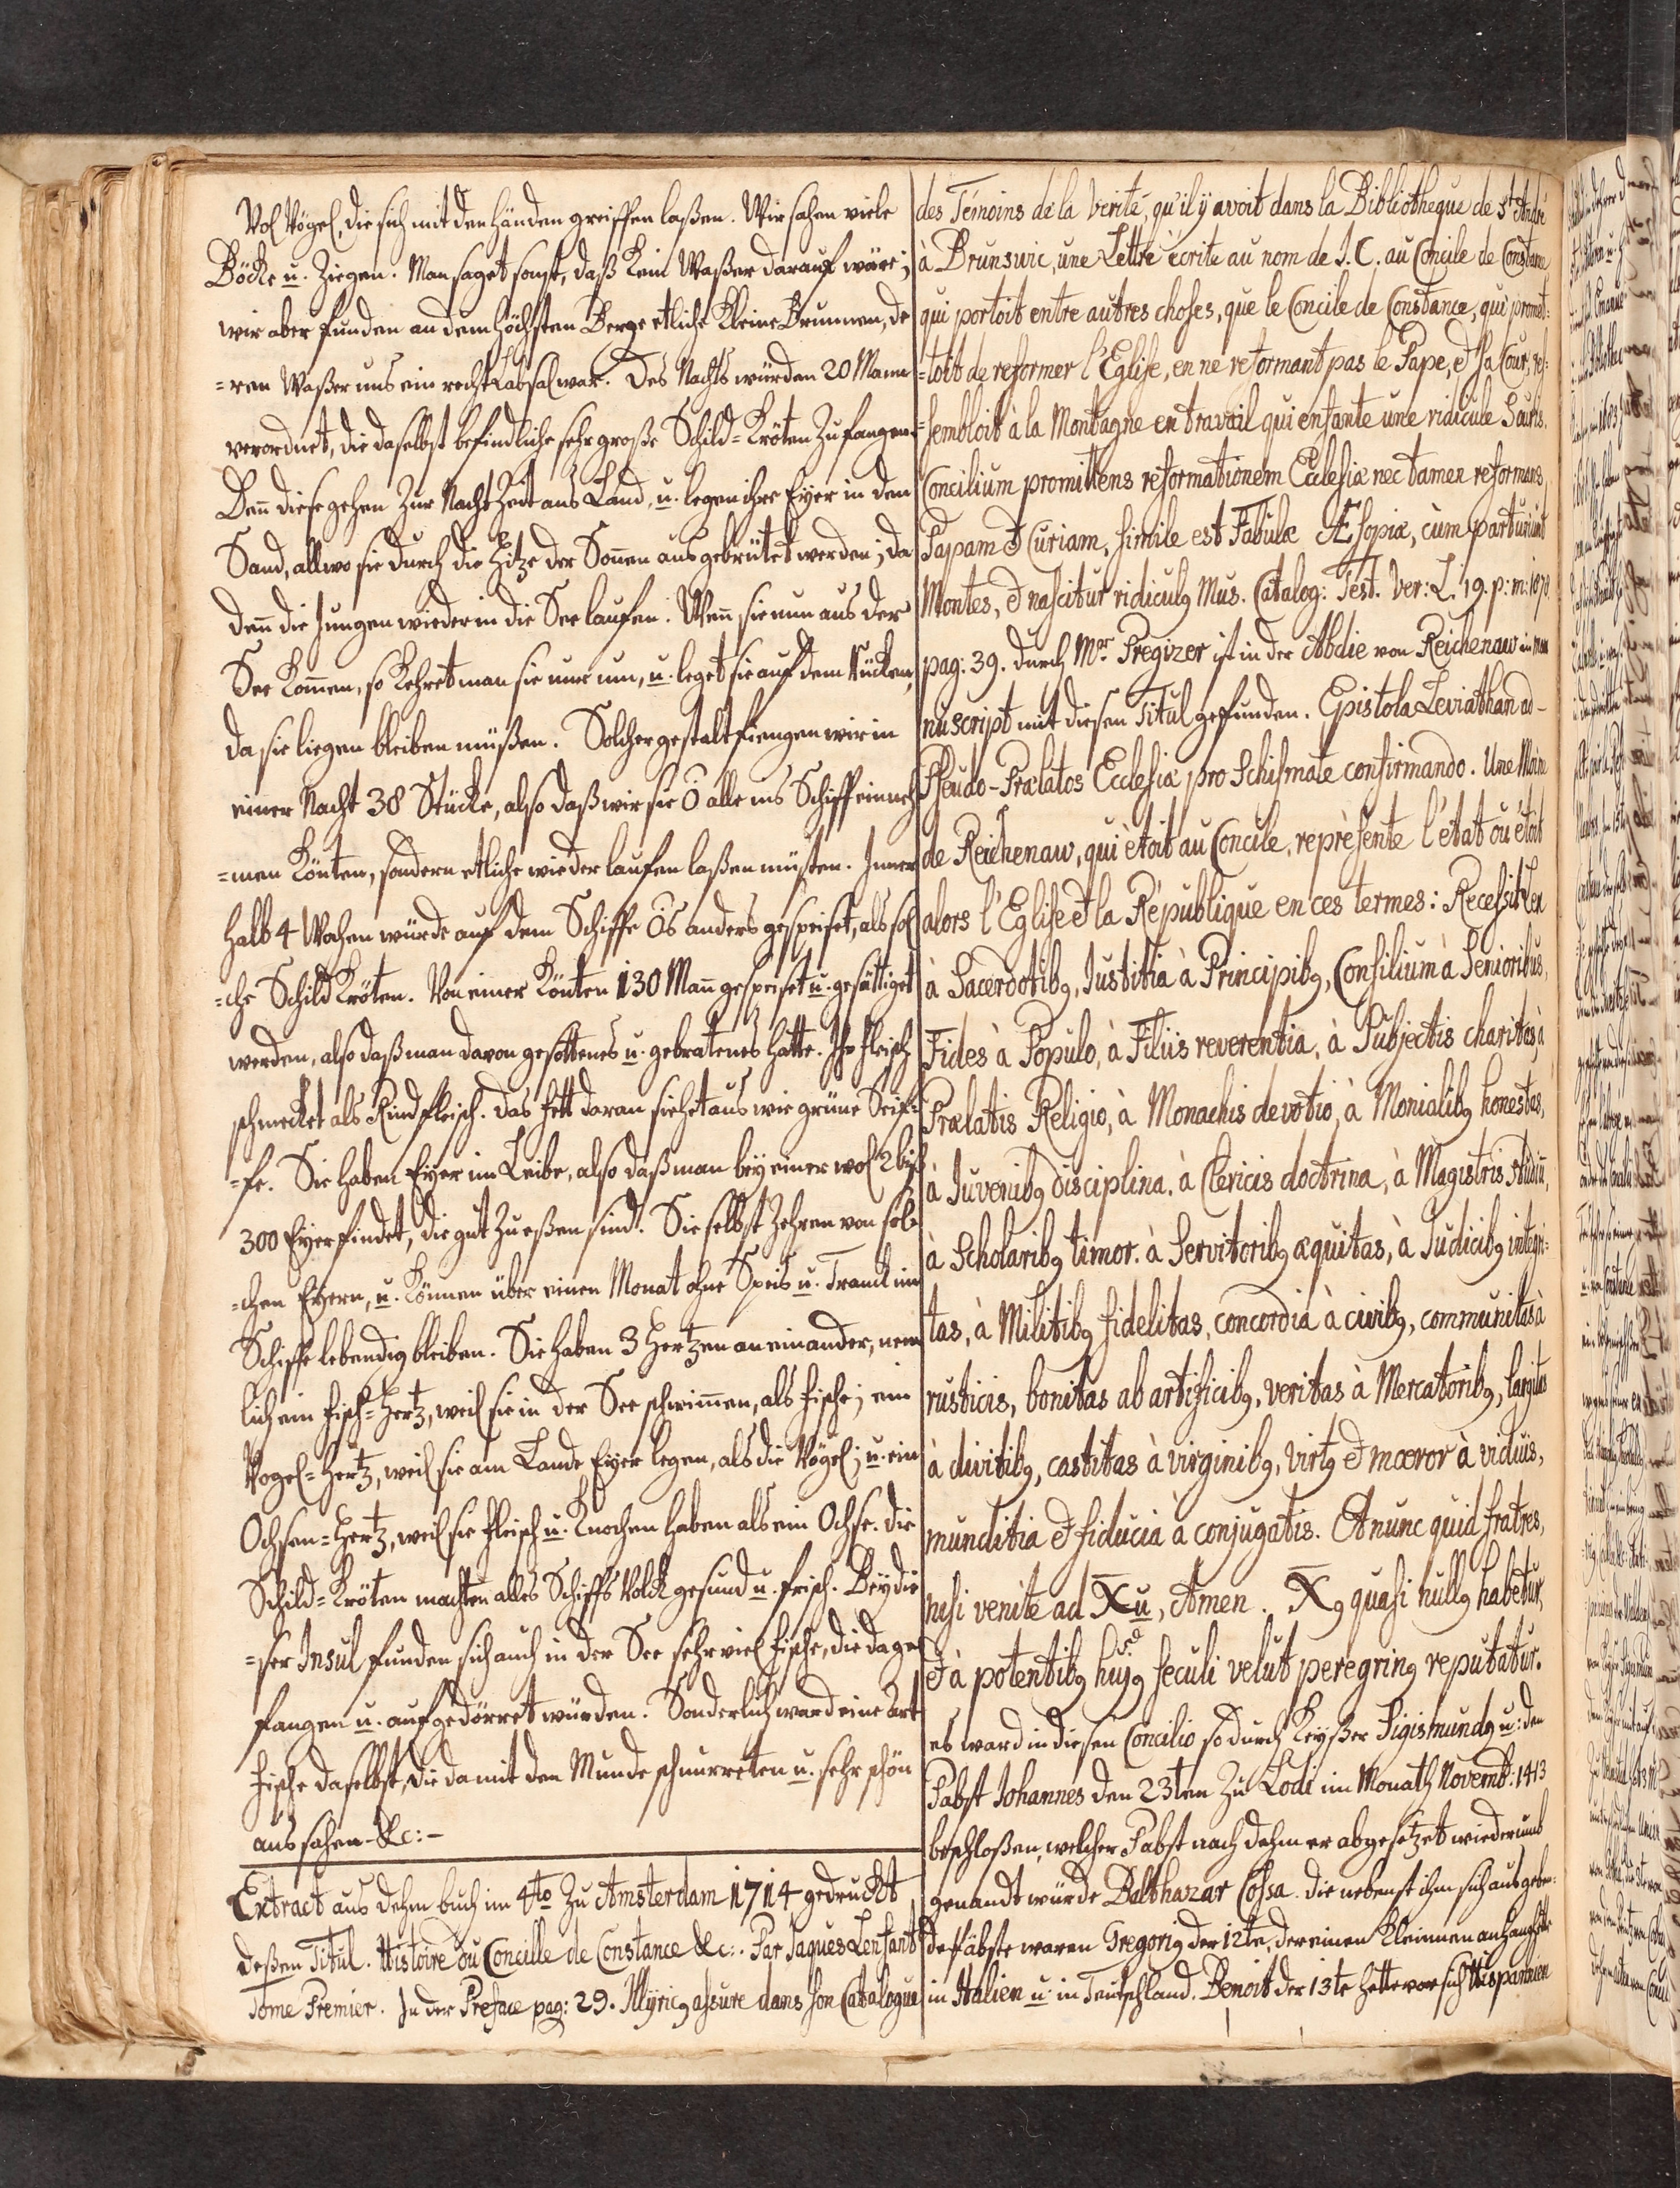 Vol Vögel, die sich mit den Händen greiffen laßen. Wir sahen viele
Böcke u. Ziegen. Man saget sonst, daß kein Waßer darauf wäre;
wir aber funden an dem höchsten Berge etliche kleine Brunnen, de
=ren Waßer uns ein recht Labsal war. Des Nachts würden 20 Mann
verordnet, die daselbst befindliche sehr große Schild=Kröten zu fangen.
Den diese gehen zur Nacht Zeit ans Land, u. legen ihre Eyer in den
Sand, allwo sie durch die Hitze der Sonnen ausgebrütet werden; da
den die Jungen wieder in die See laufen. Wen sie nun aus der
See kommen, so kehret man sie nur um, u. leget sie auf dem Rücken,
da sie liegen bleiben müßen. Solcher gestalt fiengen wir in
einer Nacht 38 Stücke, also daß wir sie Ō alle ins Schiff einneh
=men könten, sondern etliche wieder laufen laßen müsten. Inner
halb 4 Wochen würde auf dem Schiffe Ōs anders gespeiset, als sol
=che Schild Kröten. Von einer könten 130 Mann gespeiset u. gesättiget
werden, also daß man davon gesottenes u. gebratenes hatte. Ihr Fleisch
schmecket als Rindfleisch. Das Fett daran siehet aus wie grüne Seif=
=fe. Sie haben Eyer im Leibe, also daß man bey einer wol 2 biß
300 Eyer findet, die gut zu eßen sind. Sie selbst zehren von sol=
=chen Eyern, u. können über einen Monat ohne Speis u. Tranck im
Schiffe lebendig bleiben. Sie haben 3 Hertzen an einander, nem
lich ein Fisch=Hertz, weil sie in der See schwimmen, als Fische; ein
Vogel=Hertz, weil sie am Lande Eyer legen, als die Vögel; u. ein
Ochsen=Hertz, weil sie Fleisch u. Knochen haben als ein Ochse. Die
Schild=Kröten machten alles Schiffs Volck gesund u. frisch. Bey die
=ser Insul funden sich auch in der See sehr viel Fische, die da ge
fangen u. aufgedörret würden. Sonderlich ward eine Art
Fische daselbst, die da mit dem Munde schnurreten u. sehr schön
aus sahen &c:-
Extract aus dehm buch in 4to zu Amsterdam 1714 gedruckt
deßen Titul. Histoire du Concille de Constance &c:. Par Jaques Lenfant
Tome Premier. In der Preface pag: 29. Illyricꝰ assure dans son Catalogue
des Témoins de la Verité, qu'il ÿ avoit dans la Bibliotheque de St André
à Brunswic, une Lettre écrite au nom de J. C. au Concile de Constance
qui portoit entre autres choses, que le Concile de Constance, qui promet=
=toit de reformer l'Eglise, en ne reformant pas le Pape, & sa Cour, res=
=sembloit à la Montagne en travail qui enfante une ridicule Souris.
Concilium promittens reformationem Ecclesiæ nec tamen reformans
Papam & Curiam, simile est Fabulæ Æsopiæ, cùm parturiunt
Montes, & nascitur ridiculꝰ Mus. Catalog: Test. Ver: L. 19. p: m: 1870.
pag: 39. durch Mr. Pregizer ist in der Abdie von Reichenaw in Ma
nuscript mit diesen Titul gefunden. Epistola Leviathan ad-
Pseudo-Prælatos Ecclesiæ pro Schismate confirmando. Une Moine
de Reichenaw, qui ètoit au Concile, reprèsente l'état oü étoit
alors l'Eglise & la République en ces termes: Recessit Lex
à Sacerdotibꝰ, Justitia à Principibꝰ, Consilium à Senioribus,
Fides à Populo, à Filiis reverentia, à Subjectis charitas, à
Prælatis Religio, à Monachis devotio, à Monialibꝰ honestas,
à Juvenibꝰ disciplina, à Clericis doctrina, à Magistris studiū,
à Scholaribꝰ timor. à Servitoribꝰ æquitas, à Judicibꝰ integri=
tas, à Militibꝰ fidelitas, concordia à civibꝰ, communitas à
rusticis, bonitas ab artificibꝰ, veritas à Mercatoribꝰ, largitas
à divitibꝰ, castitas à virginibꝰ, virtꝰ & mœror à viduis,
munditia & fiducia à conjugatis. Et nunc quid fratres,
nisi venite ad X̄u, Amen. X̄ꝰ quasi nullꝰ habetur,
& à potentibꝰ hujꝰ seculi velut peregrinꝰ reputatur.
es ward in diesen Concilio so durch Keyßer Sigismundꝰ u: den
Pabst Johannes den 23ten zu Lodi im Monath Novemb: 1413
beschloßen, welcher Pabst nach dehm er abgesetzet wiederumb
genandt würde Balthazar Cossa. die nebenst ihm sich ausgeben
de Päbste waren Gregoriꝰ der 12te, der einen kleinnen anhang hatte
in Italien u. in Teutschland. Benoit der 13te hatte vor sich Hispannien